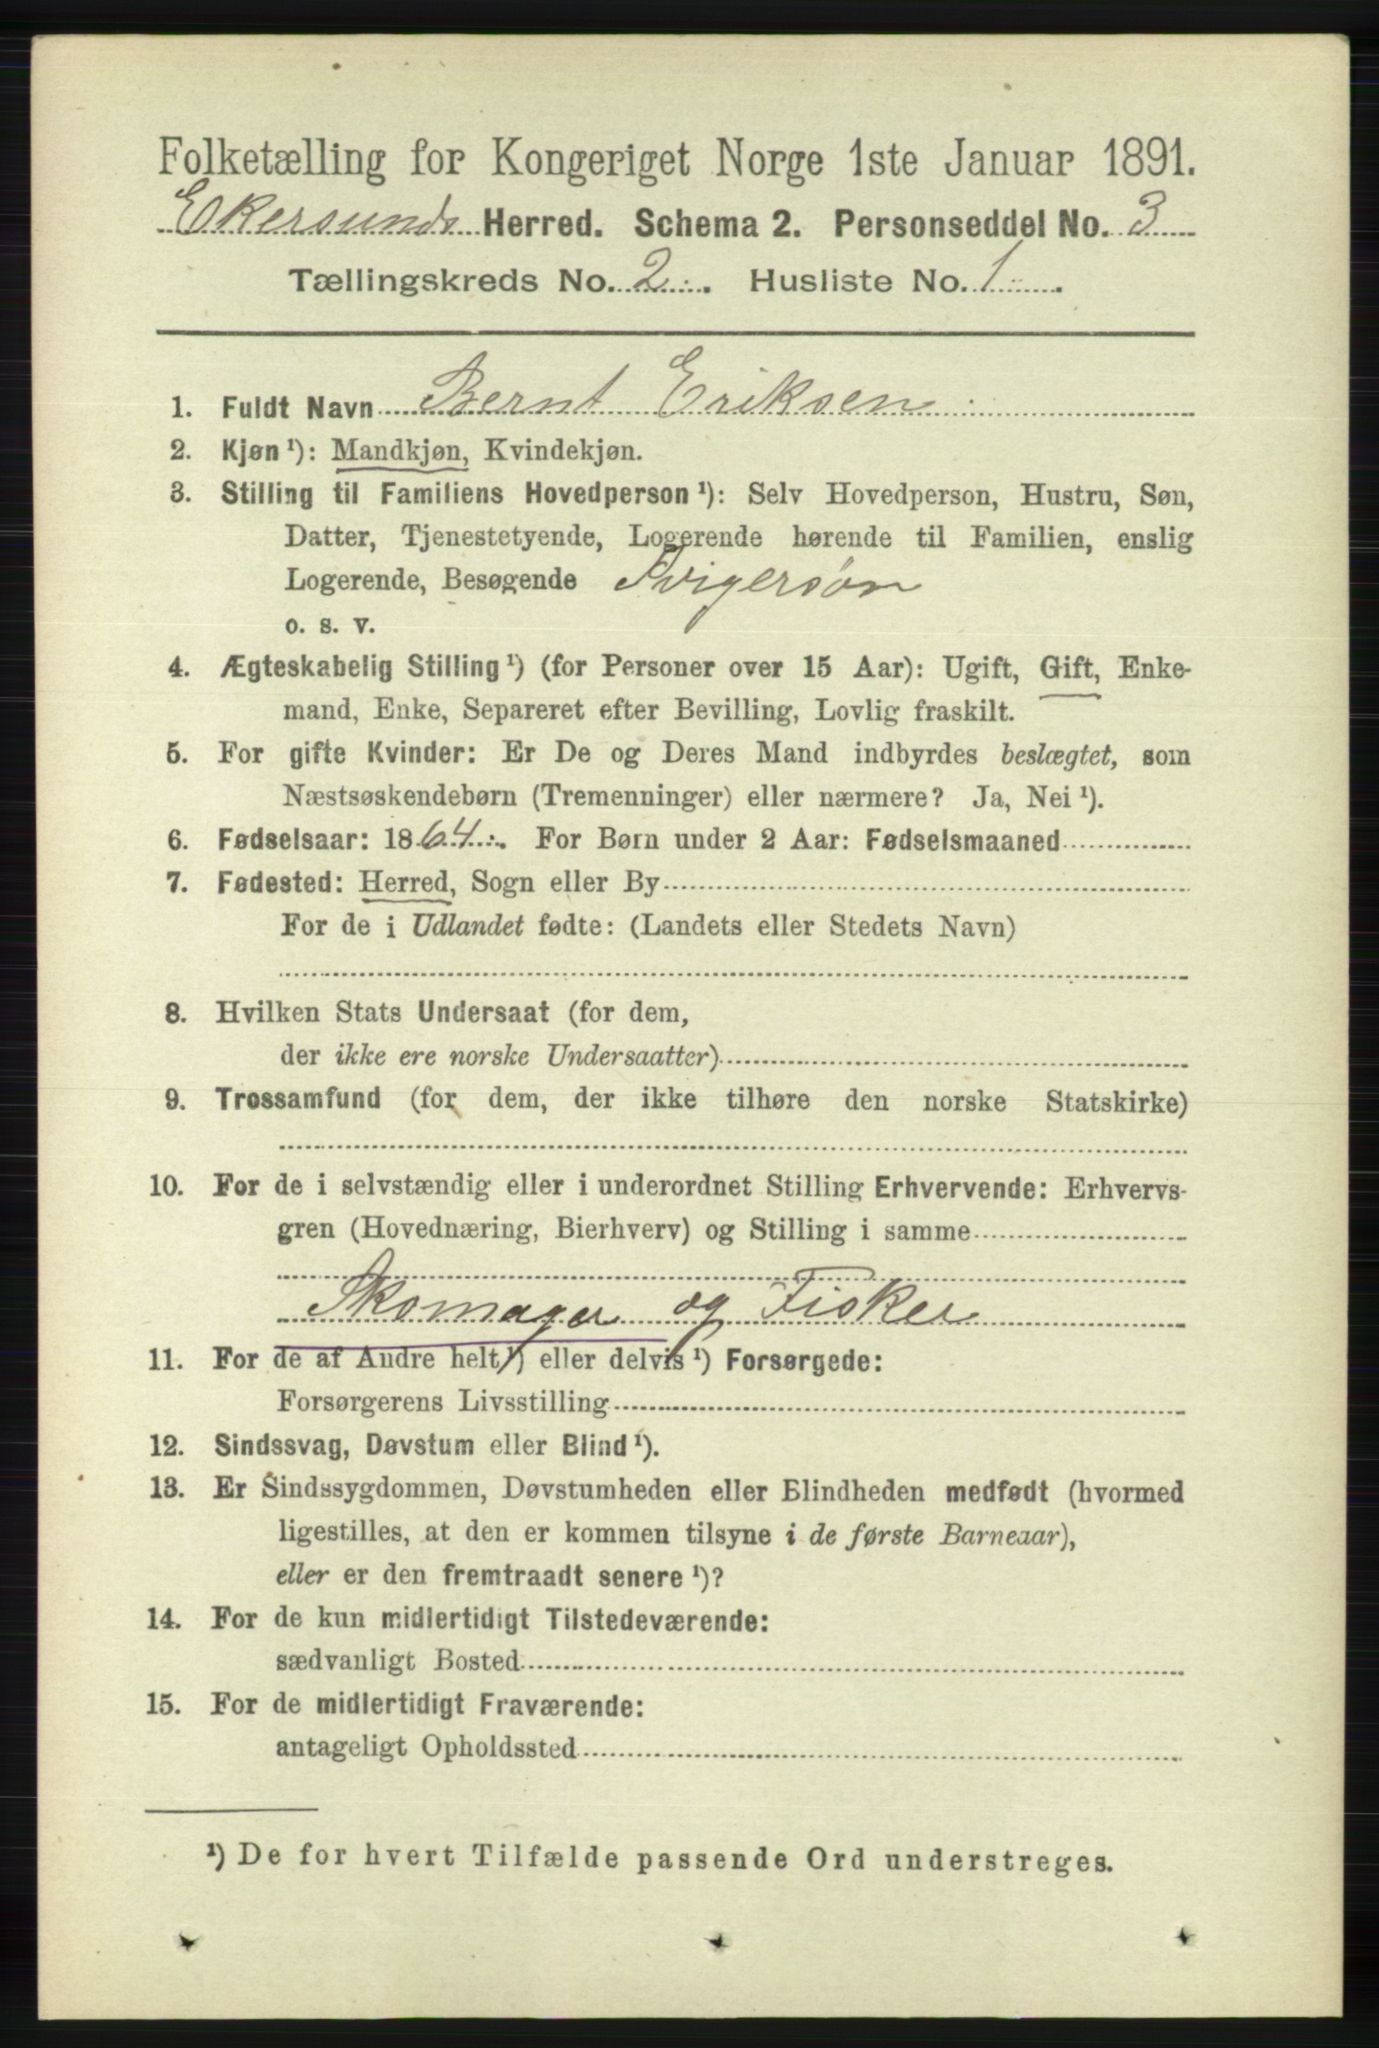 Folketælling for Kongeriget Norge 1ste Januar 1891.
Ekersunds Herred. Schema 2. Personseddel No. 3
Tællingskreds No. 2. Husliste No. 1.
1. Fuldt Navn Bernt Eriksen
2. Kjøn ¹): Mandkjøn, Kvindekjøn.
3. Stilling til Familiens Hovedperson ¹): Selv Hovedperson, Hustru, Søn,
Datter, Tjenestetyende, Logerende hørende til Familien, enslig
Logerende, Besøgende Svigersön
o. s. v.
4. Ægteskabelig Stilling ¹) (for Personer over 15 Aar): Ugift, Gift, Enke-
mand, Enke, Separeret efter Bevilling, Lovlig fraskilt.
5. For gifte Kvinder: Er De og Deres Mand indbyrdes beslægtet, som
Næstsøskendebørn (Tremenninger) eller nærmere? Ja, Nei ¹).
6. Fødselsaar: 1864. For Børn under 2 Aar: Fødselsmaaned
7. Fødested: Herred, Sogn eller By
For de i Udlandet fødte: (Landets eller Stedets Navn)
8. Hvilken Stats Undersaat (for dem,
der ikke ere norske Undersaatter)
9. Trossamfund (for dem, der ikke tilhøre den norske Statskirke)
10. For de i selvstændig eller i underordnet Stilling Erhvervende: Erhvervs-
gren (Hovednæring, Bierhverv) og Stilling i samme
Skomager og Fisker
11. For de af Andre helt ¹) eller delvis ¹) Forsørgede:
Forsørgerens Livsstilling
12. Sindssvag, Døvstum eller Blind ¹).
13. Er Sindssygdommen, Døvstumheden eller Blindheden medfødt (hvormed
ligestilles, at den er kommen tilsyne i de første Barneaar),
eller er den fremtraadt senere ¹)?
14. For de kun midlertidigt Tilstedeværende:
sædvanligt Bosted
15. For de midlertidigt Fraværende:
antageligt Opholdssted
¹) De for hvert Tilfælde passende Ord understreges.